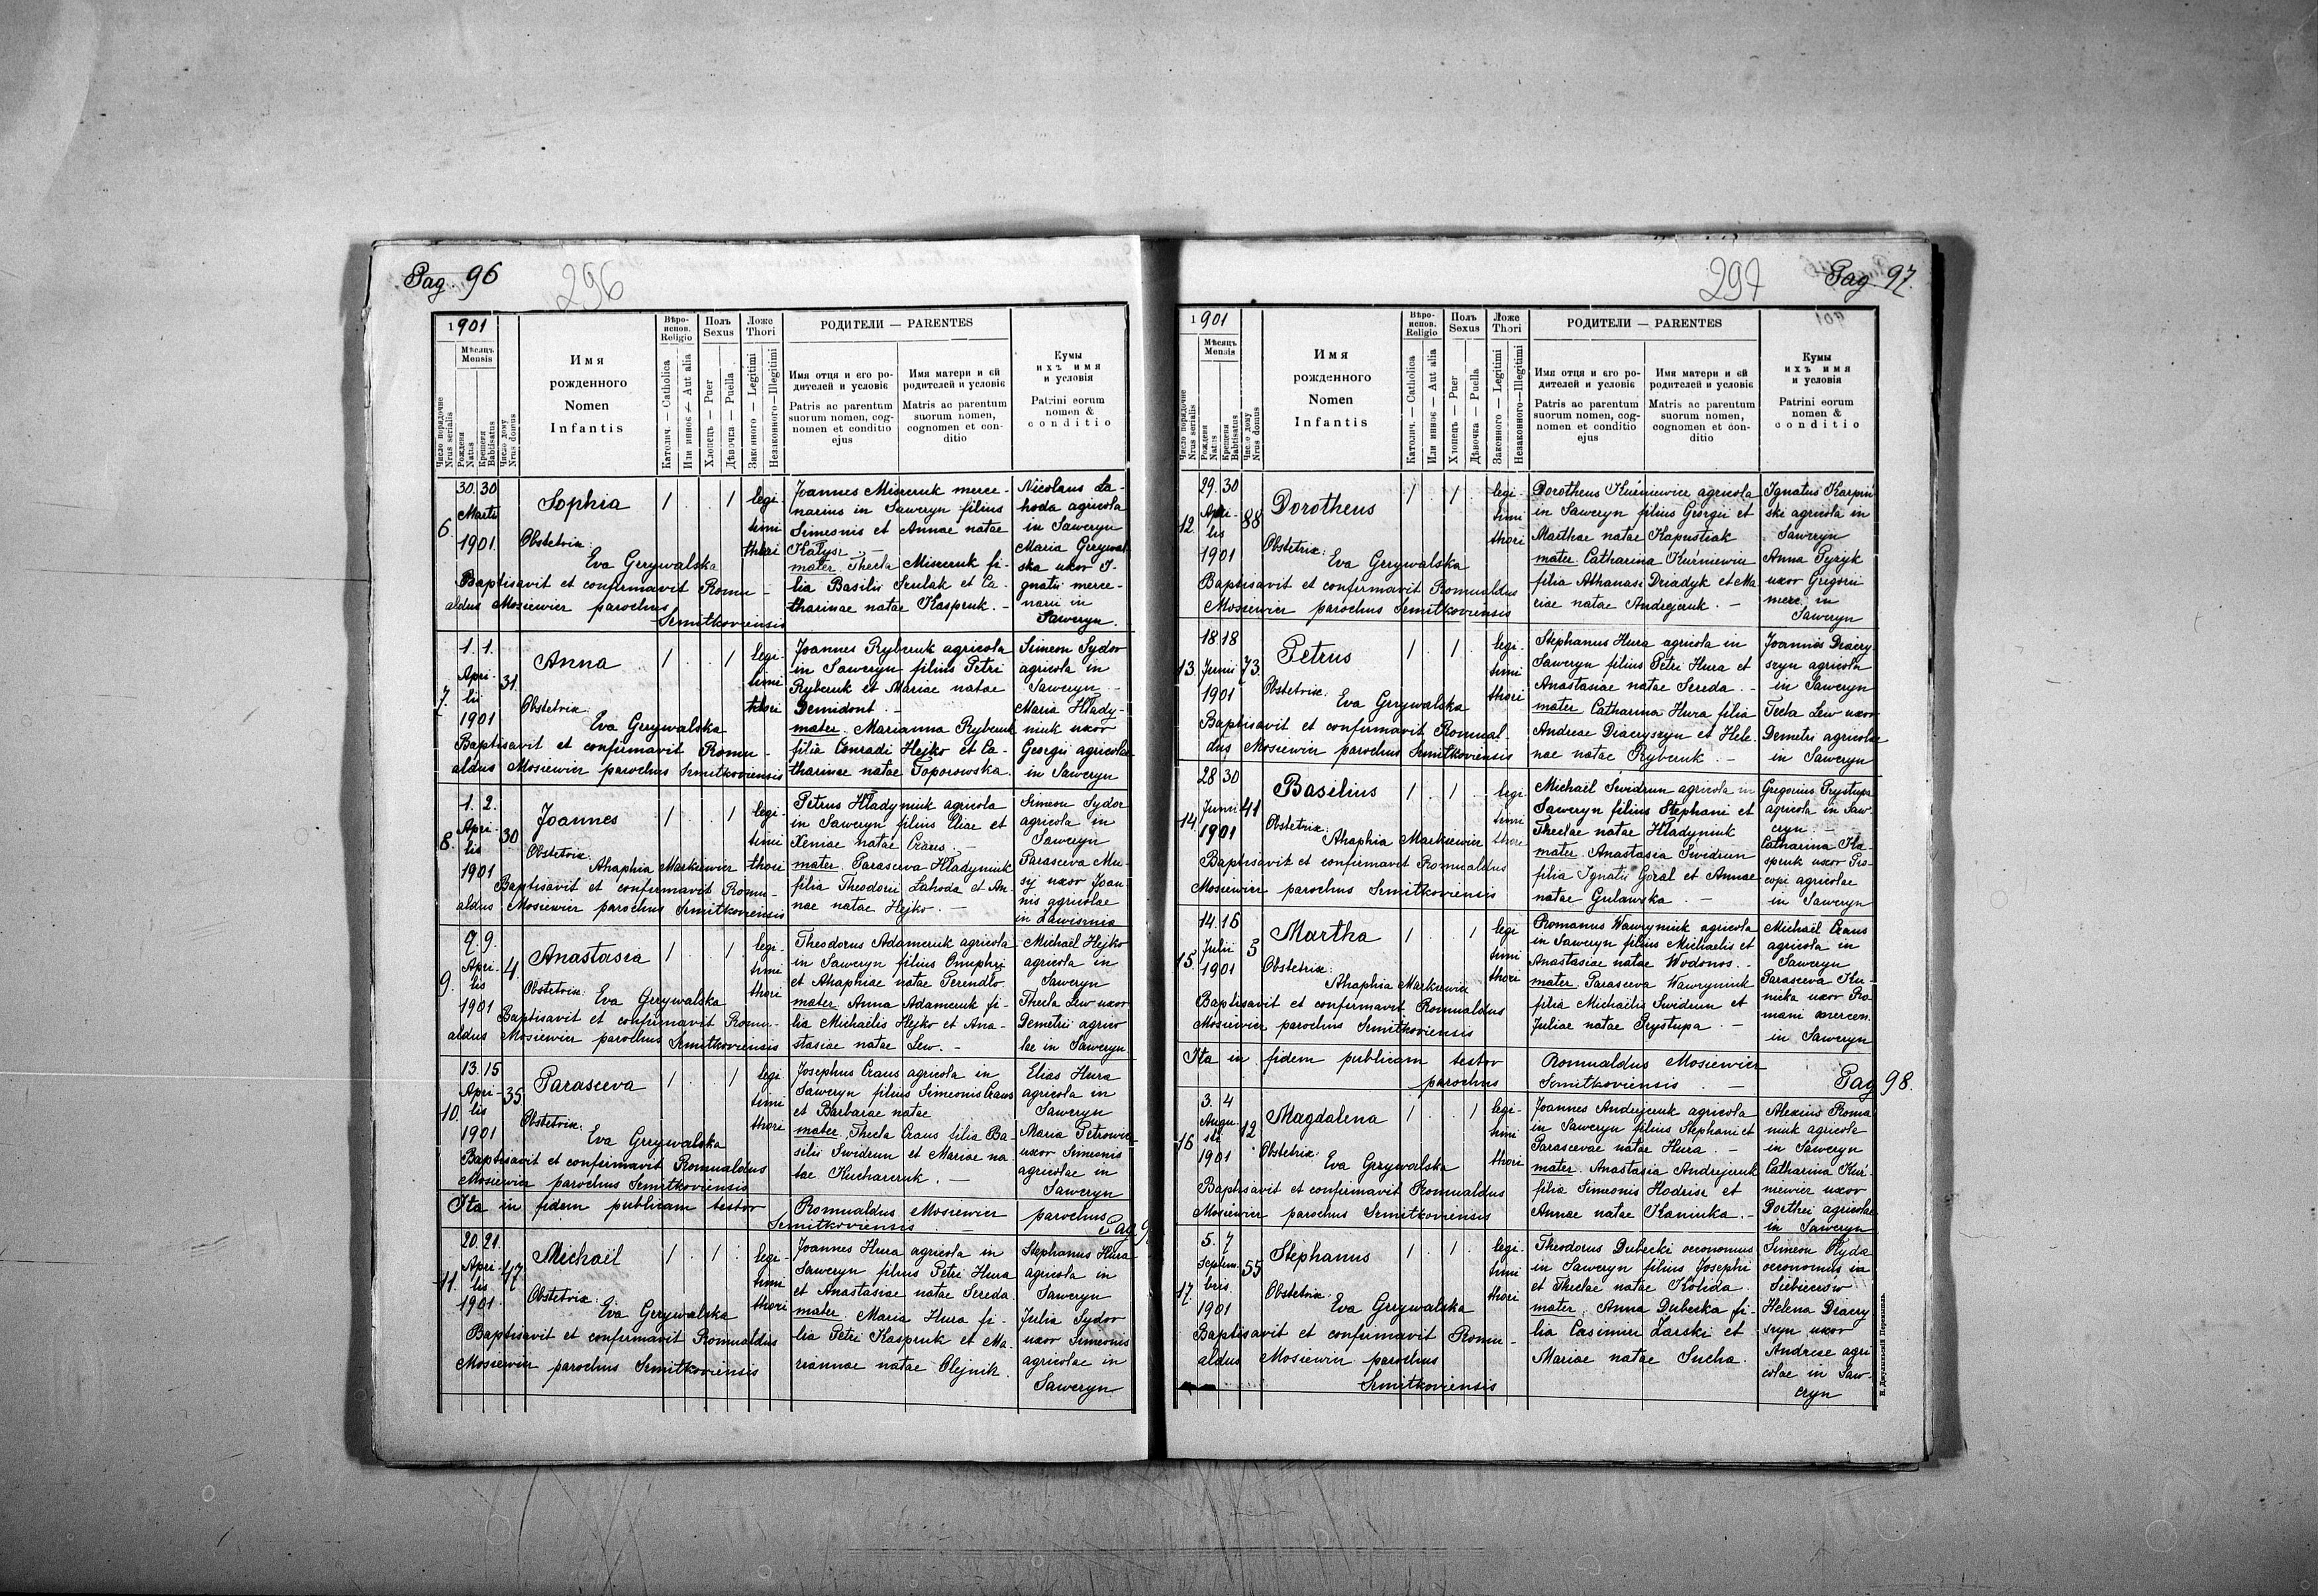 Pag. 96
296
1901
Мѣсяцъ
Mensis
Число порядочне
Nrus serialis
Рожденя
Natus
Крещеня
Babtisatus
Число дому
Nrus domus
Имя
рожденного
Nomen
Infantis
Вѣро-
испов.
Religio
Католич. — Catholica
Или инноє — Aut alia
Полъ
Sexus
Хлопецъ — Puer
Дѣвочка — Puella
Ложе
Thori
Законного — Legitimi
Незаконного — Illegitimi
РОДИТЕЛИ — PARENTES
Имя отця и єго ро-
дителей и условіє
Patris ac parentum
suorum nomen, cog-
nomen et conditio
ejus
Имя матери и єй
родителей и условіє
Matris ac parentum
suorum nomen,
cognomen et con-
ditio
Кумы
ихъ имя
и условія
Patrini eorum
nomen &
conditio
6.
30. 30
Martii
1901
Sophia
Obstetrix:
Eva Gerywalska
Baptisavit et confirmavit Romu-
aldus Mosiewicz parochus
Semitkoviensis
1 . . 1
legi-
timi
thori
Joannes Misczuk merce-
narius in Saweryn filius
Simeonis et Annae natae
Katysz
mater Thecla Misczuk fi-
lia Basilii Sculak et Ca-
tharinae natae Kaspruk. -
Nicolaus La-
hoda agricola
in Saweryn
Maria Gerywal-
ska uxor I-
gnatii merce-
narii in
Saweryn.
7.
1. 1.
Apri-
lis
1901
31.
Anna
Obstetrix:
Eva Gerywalska
Baptisavit et confirmavit Romu-
aldus Mosiewicz parochus Semitkoviensis
1 . . 1
legi-
timi
thori
Joannes Rybczuk agricola
in Saweryn filius Petri
Rybczuk et Mariae natae
Demidont. -
mater. Marianna Rybczuk
filia Conradi Hejko et Ca-
tharinae natae Toporowska.
Simeon Sydor
agricola in
Saweryn
Maria Hlady-
niuk uxor
Georgii agricolae
in Saweryn
8.
1. 2.
Apri-
lis
1901
30
Joannes
Obstetrix:
Ahaphia Markiewicz
Baptisavit et confirmavit Romu-
aldus Mosiewicz parochus Semitkoviensis
1 . . 1
legi-
timi
thori
Petrus Hladyniuk agricola
in Saweryn filius Eliae et
Xeniae natae Craus. -
mater. Parasceva Hladyniuk
filia Theodorii Lahoda et An-
nae natae Hejko. -
Simeon Sydor
agricola in
Saweryn
Parasceva Mu-
sij uxor Joan-
nis agricolae
in Zawisznia
9.
7. 9.
Apri-
lis
1901
4.
Anastasia
Obstetrix: Eva Gerywalska
Baptisavit et confirmavit Romu-
aldus Mosiewicz parochus Semitkoviensis
1 . . 1
legi-
timi
thori
Theodorus Adamczuk agricola
in Saweryn filius Onuphri
et Ahaphiae natae Perendlo.
mater. Anna Adamczuk fi-
lia Michaëlis Hejko et Ana-
stasiae natae Lew. -
Michaël Hejko
agricola in
Saweryn
Thecla Lew uxor
Demetrii agrico-
lae in Saweryn
10.
13. 15
Apri-
lis
1901
35
Parasceva
Obstetrix:
Eva Gerywalska
Baptisavit et confirmavit Romualdus
Mosiewicz parochus Semitkoviensis
1 . . 1
legi-
timi
thori
Josephus Craus agricola in
Saweryn filius Simeonis Craus
et Barbarae natae
mater. Thecla Craus filia Ba-
silii Swidrun et Mariae na-
tae Kucharczuk. -
Elias Hura
agricola in
Saweryn
Maria Petrowicz
uxor Simeonis
agricolae in
Saweryn
Ita in fidem publicam testor Romualdus Mosiewicz parochus
Semitkoviensis. Pag 9
11.
20. 21.
Apri-
lis
1901
47
Michaël
Obstetrix:
Eva Gerywalska
Baptisavit et confirmavit Romualdus
Mosiewicz parochus Semitkoviensis
1 . 1 .
legi-
timi
thori
Joannes Hura agricola in
Saweryn filius Petri Hura
et Anastasiae natae Sereda.
mater. Maria Hura fi-
lia Petri Kaspruk et Ma-
riannae natae Olejnik.
Stephanus Hura
agricola in
Saweryn
Julia Sydor
uxor Simeonis
agricolae in
Saweryn
297
Pag. 97.
1901
Мѣсяцъ
Mensis
Число порядочне
Nrus serialis
Рожденя
Natus
Крещеня
Babtisatus
Число дому
Nrus domus
Имя
рожденного
Nomen
Infantis
Вѣро-
испов.
Religio
Католич. — Catholica
Или инноє — Aut alia
Полъ
Sexus
Хлопецъ — Puer
Дѣвочка — Puella
Ложе
Thori
Законного — Legitimi
Незаконного — Illegitimi
РОДИТЕЛИ — PARENTES
Имя отця и єго ро-
дителей и условіє
Patris ac parentum
suorum nomen, cog-
nomen et conditio
ejus
Имя матери и єй
родителей и условіє
Matris ac parentum
suorum nomen,
cognomen et con-
ditio
Кумы
ихъ имя
и условія
Patrini eorum
nomen &
conditio
12.
29. 30
Apri-
lis
1901
88
Dorotheus
Obstetrix: Eva Gerywalska
Baptisavit et confirmavit Romualdus
Mosiewicz parochus Semitkoviensis
1 . 1 .
legi-
timi
thori
Dorotheus Kuśniewicz agricola
in Saweryn filius Georgii et
Marthae natae Kapustiak
mater Catharina Kuśniewicz
filia Athanasi Dziadyk et Ma
ciae natae Andrejczuk. -
Ignatus Karpiń-
ski agricola in
Saweryn
Anna Pyzyk
uxor Gregorii
merc. in
Saweryn
13.
18 18
Junii
1901
73.
Petrus
Obstetrix: Eva Gerywalska
Baptisavit et confirmavit Romual-
dus Mosiewicz parochus Semitkoviensis
1 . 1 .
legi-
timi
thori
Stephanus Hura agricola in
Saweryn filius Petri Hura et
Anastasiae natae Sereda. -
mater Catharina Hura filia
Andreae Diaczyszyn et Hele-
nae natae Rybczuk. -
Joannes Diaczy-
szyn agricola
in Saweryn
Tecla Lew uxor
Demetri agricolae
in Saweryn
14.
28 30
Junii
1901
41
Basilius
Obstetrix:
Ahaphia Markiewicz
Baptisavit et confirmavit Romualdus
Mosiewicz parochus Semitkoviensis
1 . 1 .
legi-
timi
thori
Michaël Swidrun agricola in
Saweryn filius Stephani et
Theclae natae Hladyniuk
mater. Anastasia Swidrun
filia Ignatii Goral et Annae
natae Gulawska. -
Gregorius Prystupa
agricola in Saw-
eryn. -
Catharina Ka-
spruk uxor Pro-
copi agricolae
in Saweryn
15.
14. 16
Julii
1901
5
Martha
Obstetrix:
Ahaphia Markiewicz
Baptisavit et confirmavit Romualdus
Mosiewicz parochus Semitkoviensis
1 . . 1
legi
timi
thori
Romanus Wawryniuk agricola
in Saweryn filius Michaelis et
Anastasiae natae Wodonos. -
mater. Parasceva Wawryniuk
filia Michaëlis Swidrun et
Juliae natae Prystupa. -
Michaël Craus
agricola in
Saweryn
Parasceva Ku-
nicka uxor Ro-
mani mercen.
in Saweryn
Ita in fidem publicam testor Romualdus Mosiewicz
parochus Semitkoviensis. - Pag 98.
16
3. 4
Augu-
sti
1901
12
Magdalena
Obstetrix:
Eva Gerywalska
Baptisavit et confirmavit Romualdus
Mosiewicz parochus Semitkoviensis
1 . . 1
legi-
timi
thori
Joannes Andrejczuk agricola
in Saweryn filius Stephani et
Parascevae natae Hura. -
mater. Anastasia Andrejczuk
filia Simeonis Hodrisz et
Annae natae Kaniuka. -
Alexius Roma-
niuk agricola
in Saweryn
Catharina Kuś-
niewicz uxor
Dorthei agricolae
in Saweryn
17.
5. 7
Septem-
bris
1901
55
Stephanus
Obstetrix:
Eva Gerywalska
Baptisavit et confirmavit Romu-
aldus Mosiewicz parochus
Semitkoviensis
1 . 1 .
legi-
timi
thori
Theodorus Dubecki oeconomus
in Saweryn filius Josephi
et Theclae natae Kolida.
mater. Anna Dubecka fi-
lia Casimiri Zarski et
Mariae natae Sucha.
Simeon Hyda
oeconomus in
Siebieczów
Helena Diaczy
szyn uxor
Andreae agri
colae in Saw-
eryn
Н. Джулынскій Перемышль.